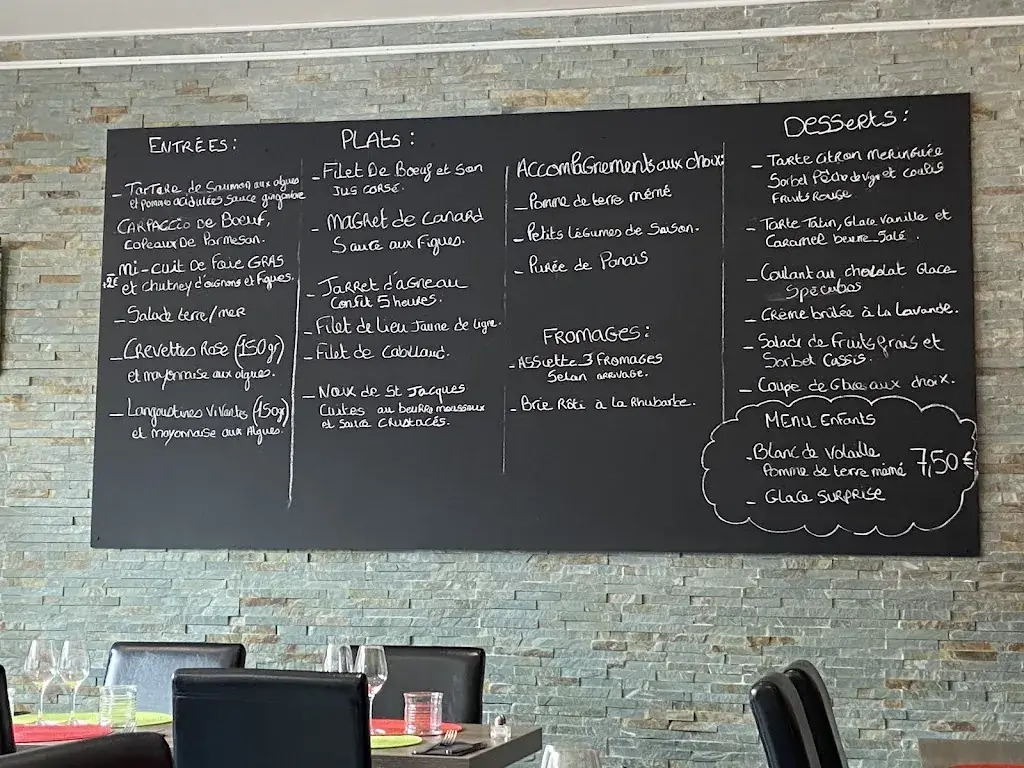 ENTRÉES :
- Tartare de Saumon aux algues
et pommes acidulées sauce gingembre
CARPACCIO DE Boeuf,
COPEAUX DE PARMESAN.
- Mi-cuit De Foie GRAS
+2€ et chutney d'oignons et figues.
- Salade terre/mer
- Crevettes Rose (150gr)
et mayonnaise aux algues.
- Langoustines Vivantes (150gr)
et mayonnaise aux Algues.
PLATS :
- Filet De Boeuf et son
Jus corsé.
- Magret de Canard
Sauce aux Figues.
- Jarret d'agneau
Confit 5 heures.
- Filet de Lieu Jaune de ligne.
- Filet de Cabillaud.
- Noix de St Jacques
Cuites au beurre mousseux
et Sauce Crustacés.
Accompagnements aux choix
- Pomme de terre mémé
- Petits Légumes de Saison.
- Purée de Panais
FROMAGES :
- Assiette 3 Fromages
Selon arrivage.
- Brie Rôti à la Rhubarbe.
DESSERTS :
- Tarte Citron Meringuée
Sorbet Pêche de vigne et coulis
Fruits Rouge
- Tarte Tatin, Glace Vanille et
Caramel beurre Salé.
- Coulant au chocolat Glace
Spéculos
- Crème brulée à la Lavande.
- Salade de Fruits frais et
Sorbet Cassis.
- Coupe de Glace aux choix.
MENU Enfants
- Blanc de Volaille
Pomme de terre mémé 7,50€
- Glace SURPRISE